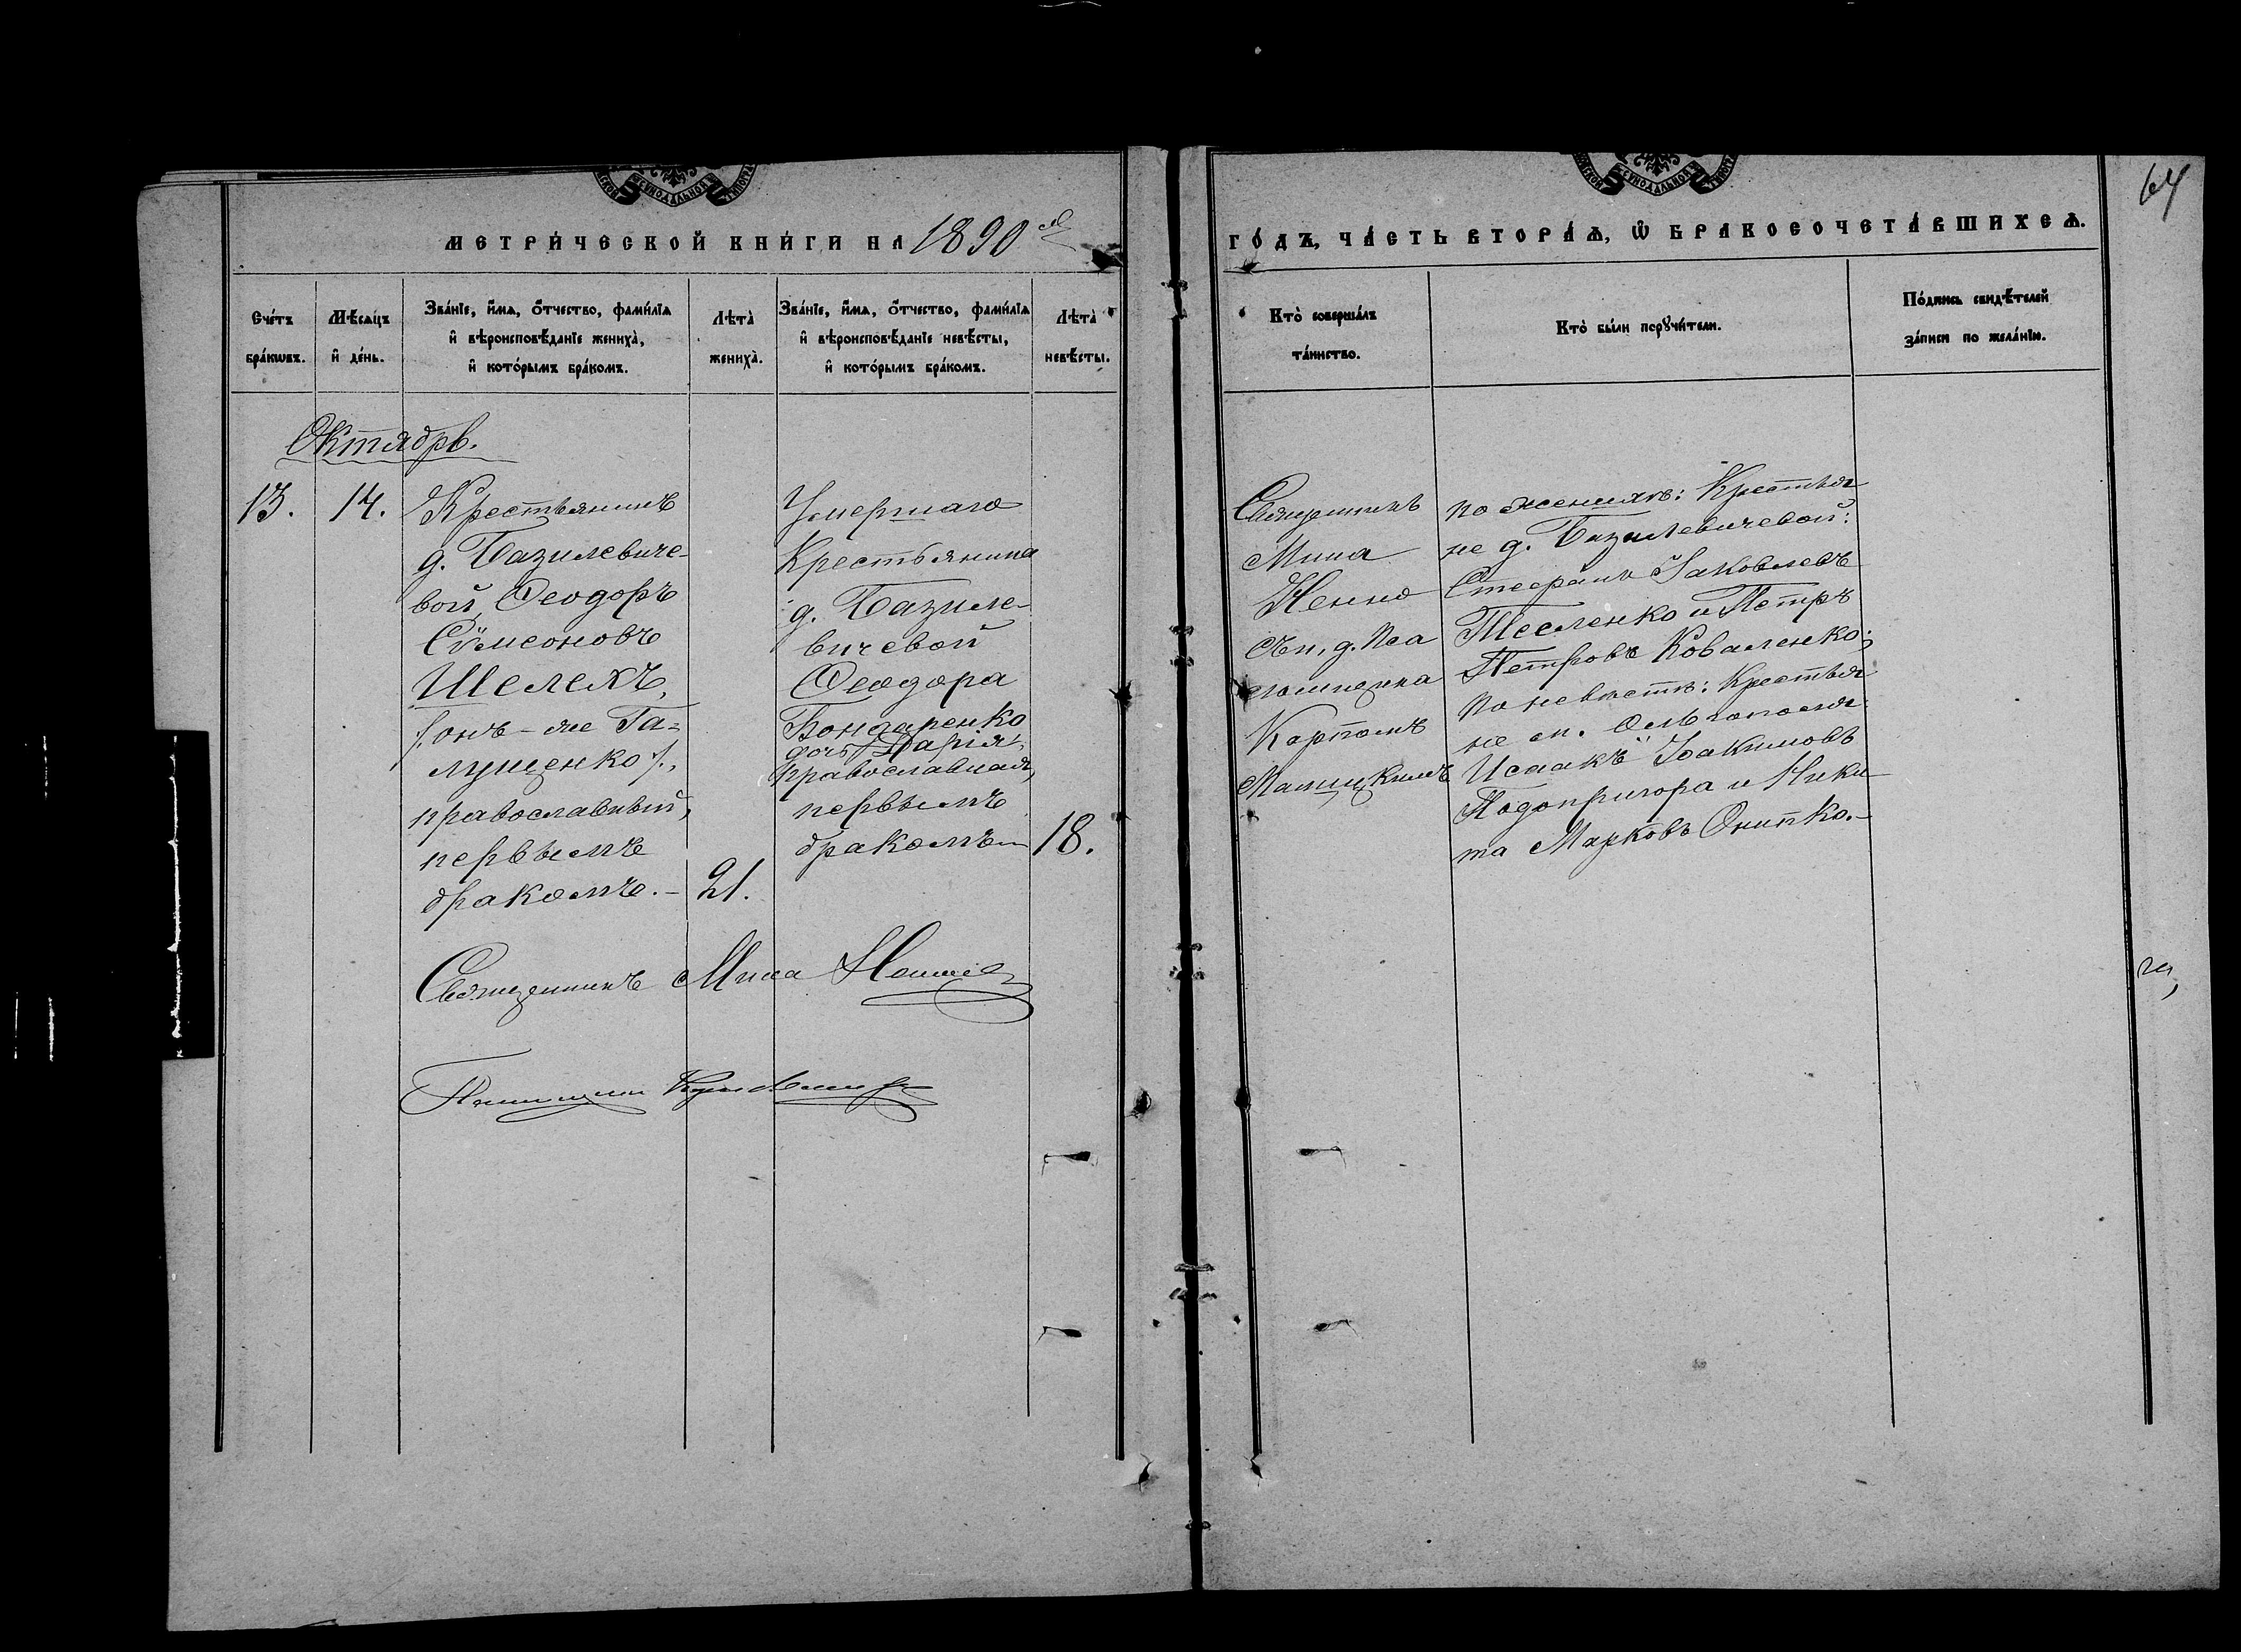 МЕТРИ́ЧЕСКОЙ КНИ́ГИ НА 1890 й
ГО́ДЪ, ЧА́СТЬ ВТОРА́Ѧ, Ѿ БРАКОСОЧЕТА́ВШИХСѦ.
64
Сче́тъ
бра́кѡвъ.
Мѣ́сѧцъ
и҆ де́нь.
Зва́нїе, и҆́мѧ, ѻ҆́тчество, фами́лїѧ
и҆ вѣроисповѣ́данїе жениха̀,
и҆ кото́рымъ бра́комъ.
Лѣта̀
жениха̀.
Зва́нїе, и҆́мѧ, ѻ҆́тчество, фами́лїѧ
и҆ вѣроисповѣ́данїе невѣ́сты,
и҆ кото́рымъ бра́комъ.
Лѣта̀
невѣ́сты.
Кто̀ соверша́лъ
та́инство.
Кто̀ бы́ли порꙋчи́тели.
По́дпись свидѣ́телей
за́писи по жела́нїю.
Октябрь.
13.
14.
Крестьянинъ
д. Базилевиче-
вой, Ѳеодоръ
Сѵмеоновъ
Шелехъ,
/: онъ-же Га-
лущенко :/,
православный,
первымъ
бракомъ.-
21.
Умершаго
Крестьянина
д. Базиле-
вичевой
Ѳеодора
Бондаренко
дочь Дарія,
православная,
первымъ
бракомъ
18.
Священникъ
Мина
Ненно
съ и. д. Пса
ломщика
Карпомъ
по женихѣ: Крестья
не д. Базилевичевой:
Стефанъ Іаковлевъ
Тесленко и Петръ
Петровъ Коваленко;
по невѣстѣ: Крестья
не м. Ольгополя
Исаакъ Іоакимовъ
Подопригора и Ники
та Марковъ Онипко.-
Священникъ Мина